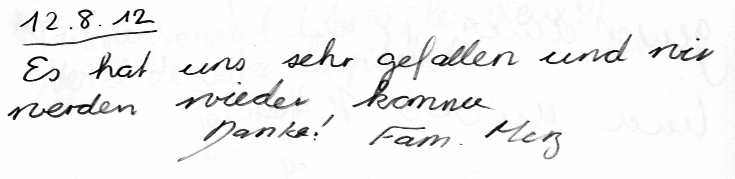 12.8.12
Es hat uns sehr gefallen und wir
werden wieder kommen
Danke! Fam. Merz